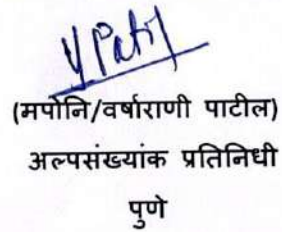 V Patil
(मपोनि/वर्षाराणी पाटील)
अल्पसंख्यांक प्रतिनिधी
पुणे